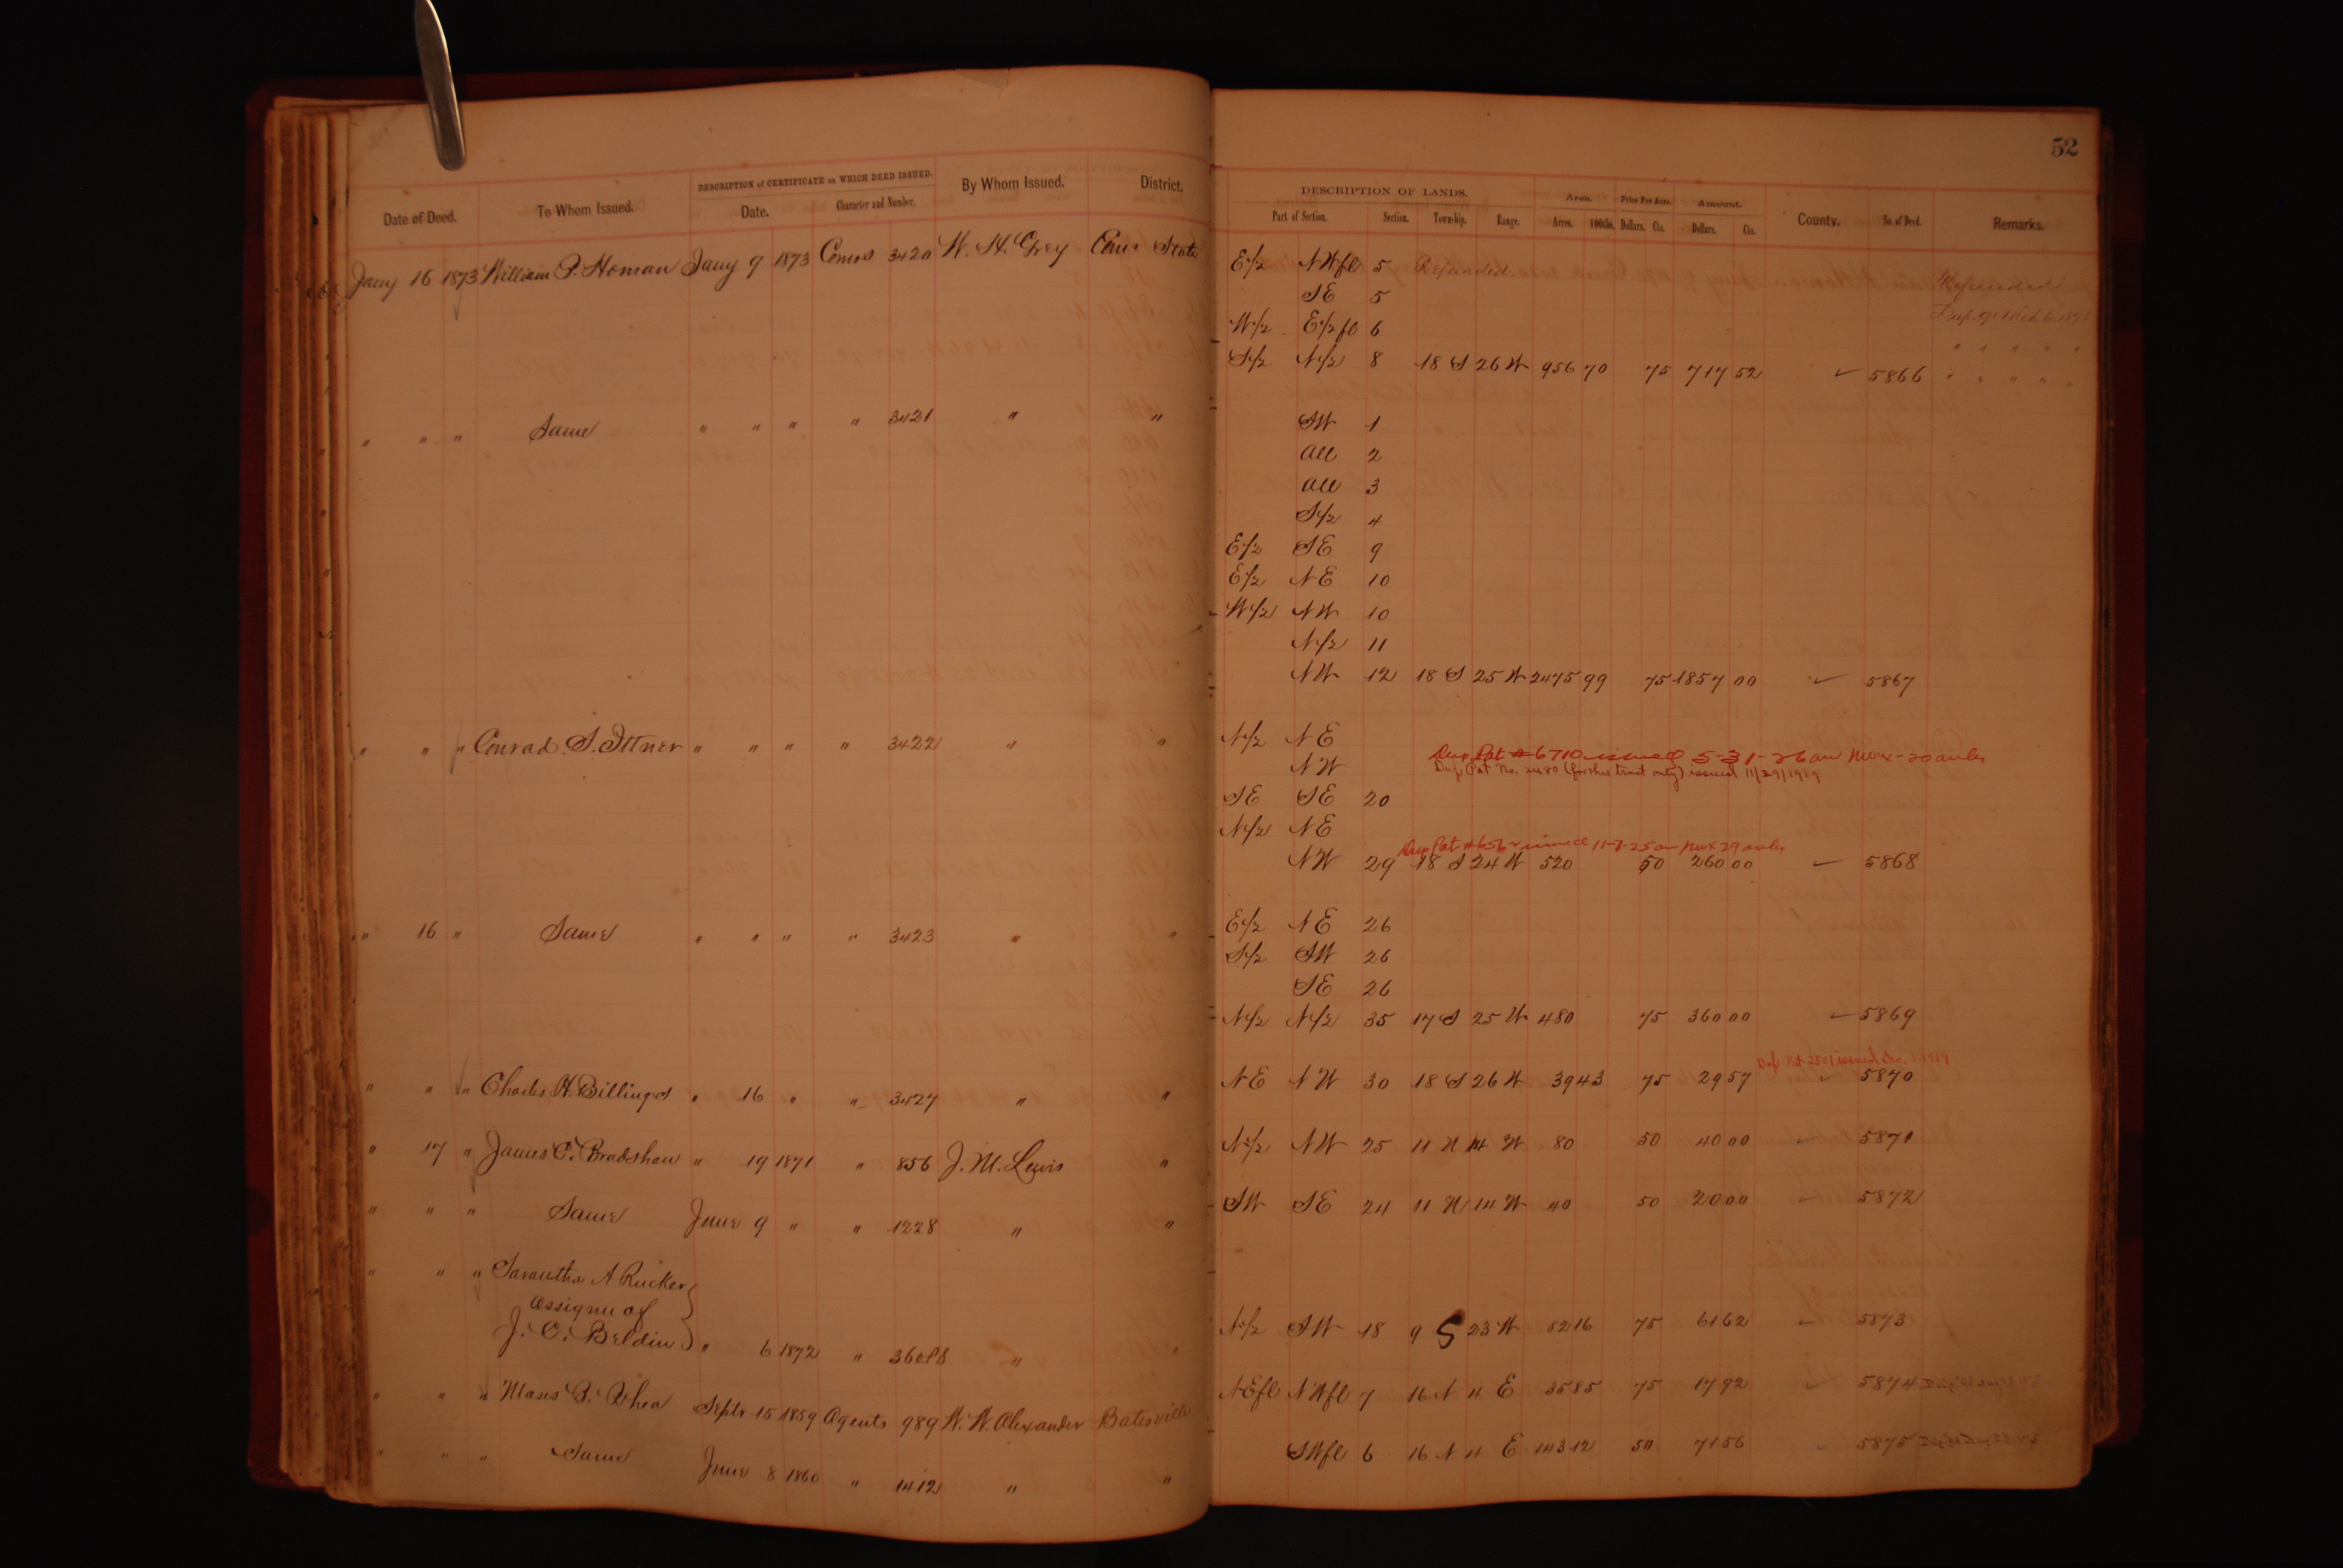 52
DESCRIPTION of CERTIFICATE on WHICH DEED ISSUED. By Whom Issued. District.
Date of Deed. To Whom Issued. Date. Character and Number.
DESCRIPTION OF LANDS. Area. Price Per Acre. Amount. County. No. of Deed. Remarks.
Part of Section. Section. Township. Range. Acres. 100ths. Dollars. Cts. Dollars. Cts.
Jany 16 1873 William P. Homan Jany 9 1873 Comrs 3420 W. H. Grey Comr State E/2 NWfl 5 Refunded Refunded
SE 5
W/2 E/2 fl 6 " " " " "
S/2 N/2 8 18 S 26 W 956 70 75 717 52 ✓ 5866 " " " " "
" " " Same " " " " 3421 " " SW 1
All 2
All 3
S/2 4
E/2 SE 9
E/2 NE 10
W/2 NW 10
N/2 11
NW 12 18 S 25 W 2475 99 75 1857 00 ✓ 5867
" " " Conrad S. Ittner " " " " 3422 " " N/2 NE
Dup Pat # 6710 issued 5-31-26
NW Dup Pat No. 2480 (for this tract only) issued 11/29/1919
SE SE 20
N/2 NE
Dup Pat # 656 issued
NW 29 18 S 24 W 520 50 260 00 ✓ 5868
" 16 " Same " " " " 3423 " " E/2 NE 26
S/2 SW 26
SE 26
N/2 N/2 35 17 S 25 W 480 75 360 00 ✓ 5869
Dup Pat 2501 issued Dec. 1919
" " " Charles H. Billings " 16 " " 3427 " " NE NW 30 18 S 26 W 39 43 75 29 57 ✓ 5870
" 17 " James C. Bradshaw " 19 1871 " 856 J. M. Lewis " N/2 NW 25 11 N 14 W 80 50 40 00 ✓ 5871
" " " Same June 9 " " 1228 " " SW SE 24 11 N 14 W 40 50 20 00 ✓ 5872
" " " Sarautha A Rucker
Assignee of
J. C. Beldin " 6 1872 " " " N/2 SW 18 9 S 23 W 82 16 75 61 62 ✓ 5873
" " " Moses B. Rhea Septr 15 1859 Agents 989 W. W. Alexander Batesville NEfl NWfl 7 16 N 4 E 35 85 75 17 92 ✓ 5874
" " " Same June 8 1860 " 1412 " " SWfl 6 16 N 4 E 143 12 50 71 56 ✓ 5875